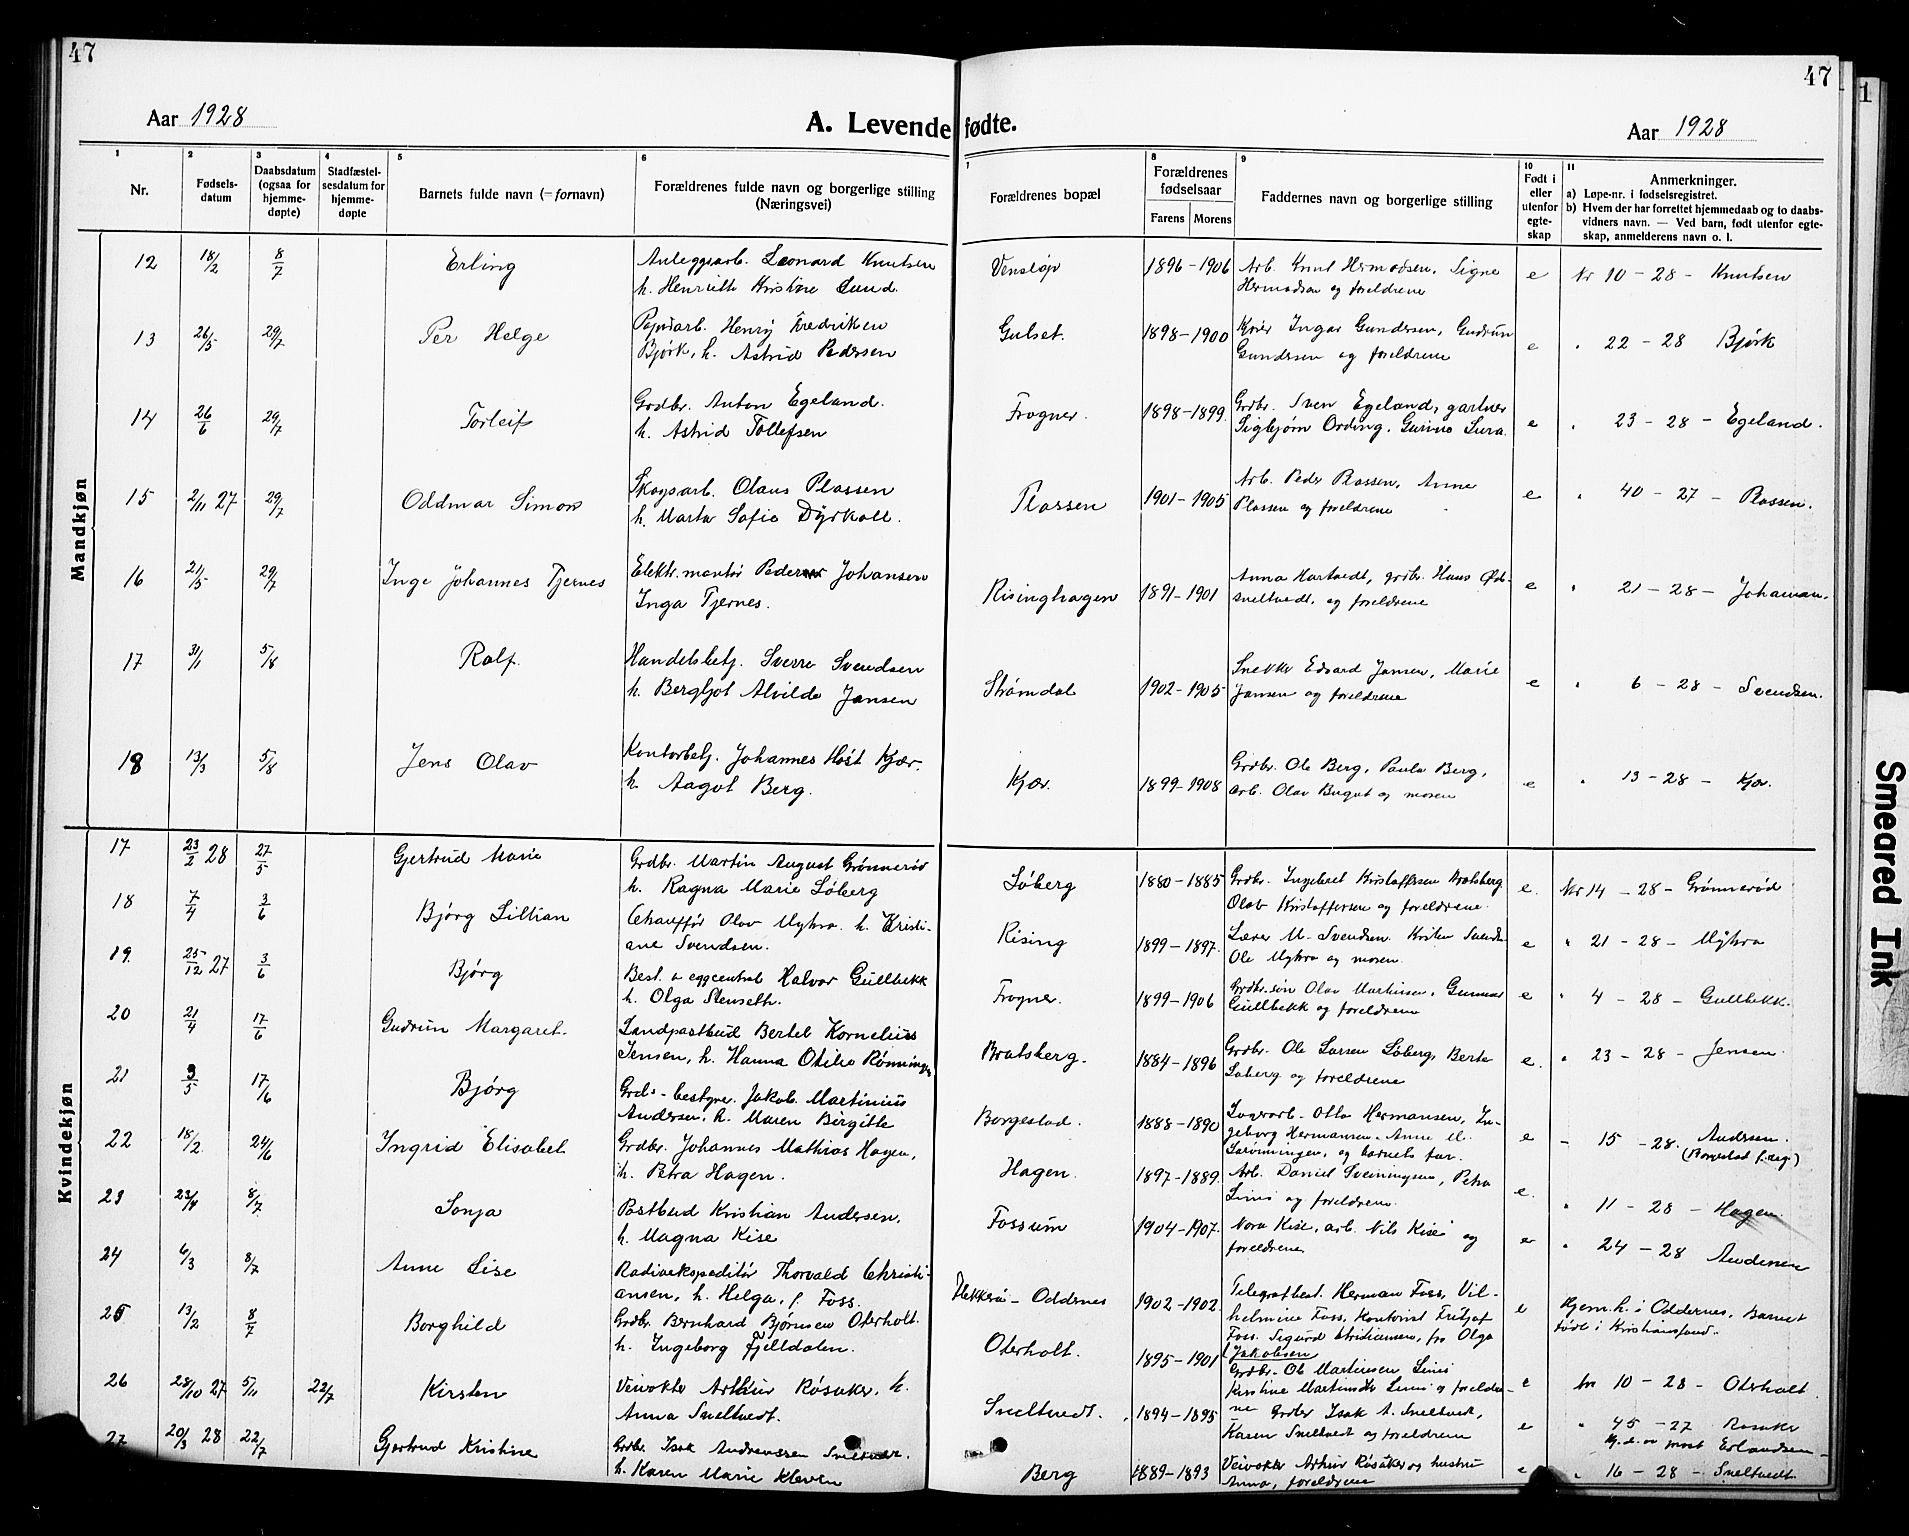 47
47
1
Aar 1928
A. Levende fødte.
Aar 1928
1
2
3
4
5
6
7
8
9
10
11
Nr.
Fødsels-
datum
Daabsdatum
(ogsaa for
hjemme-
døpte)
Stadfæstel-
sesdatum for
hjemme-
døpte
Barnets fulde navn (= fornavn)
Forældrenes fulde navn og borgerlige stilling
(Næringsvei)
Forældrenes bopæl
Forældrenes
fødselsaar
Farens Morens
Faddernes navn og borgerlige stilling
Født i
eller
utenfor
egte-
skap
Anmerkninger.
a) Løpe-nr. i fødselsregistret.
b) Hvem der har forrettet hjemmedaab og to daabs-
vidners navn. — Ved barn, født utenfor egte-
skap, anmelderens navn o. l.
Mandkjøn
12 18/2 8/7 Erling
Anleggsarb. Leonard Knutsen
h. Henriette Kristine Lund.
Venstøp 1896-1906
Arb. Knut Hermodsen, Signe
Hermodsen og foreldrene
e Nr 10-28 - Knutsen
13 26/5 29/7 Per Helge
Papirarb. Henry Fredriksen
Bjørk, h. Astrid Pedersen
Gulset. 1898-1900
Ingar Gundersen, Gudrun
Gundersen og foreldrene
e " 22-28 Bjørk
14 26/6 29/7 Torleif
Grdbr. Anton Egeland.
h. Astrid Tollefsen
Frogner. 1898-1899.
Grdbr. Sven Egeland, gartner
Sigbjørn Ording,
e " 23-28 - Egeland.
15 2/11 27 29/7 Oddmar Simon
Skogsarb. Olaus Plassen
h. Marta Sofie Dyrkoll.
Plassen 1901-1905
Arb. Peder Plassen, Anne
Plassen og foreldrene
e " 40-27 - Plassen.
16 21/5 29/7 Inge Johannes Tjernes
Elektr. montør Peder Johansen
Inga Tjernes.
Risinghagen 1891-1901
Anna Hartvedt, grdbr. Hans
Sneltvedt, og foreldrene
e " 21-28 - Johansen.
17 31/1 5/8 Ralf.
Handelsbetj. Sverre Svendsen
h. Bergljot Alvilde Jansen
Strømdal 1902-1905
Snekker Edvard Jansen, Marie
Jansen og foreldrene
e " 6-28 - Svendsen.
18 13/3 5/8 Jens Olav
Kontorbetj. Johannes Høst Kjær.
h. Aagot Berg.
Kjær. 1899-1908
Grdbr. Ole Berg, Paula Berg,
arb. Olav og moren
e " 13-28 - Kjær.
Kvindekjøn
17 23/2 28 27/5 Gjertrud Marie
Grdbr. Martin August Grønnerød
h. Ragna Marie Løberg
Løberg 1880-1885
Grdbr. Ingebret Kristoffersen Bratsberg
Olav Kristoffersen og foreldrene.
e. Nr 14-28 - Grønnerød
18 7/4 3/6 Bjørg Lillian
Chauffør Olav Myhra. h. Kristi-
ane Svendsen.
Rising 1899-1897.
Lærer M. Svendsen.
Ole Myhra og moren.
e " 21-28 - Myhra
19. 25/12 27 3/6 Bjørg
Best. a eggcentral Halvor Gullbekk
h. Olga Stenseth.
Frogner. 1899-1906
Grdbr.søn Olav Martinsen, Gunnar
Gullbekk og foreldrene
e " 4-28 - Gullbekk.
20 21/4 17/6 Gudrun Margaret.
Landpostbud Bertel Kornelius
Jensen, h. Hanna Otilie Rønningen
Bratsberg. 1884-1896
Grdbr. Ole Larsen Løberg, Berte
Løberg og foreldrene
e. " 23-28 - Jensen.
21 3/5 17/6 Bjørg
Grds-bestyrer. Jakob Martinius
Andersen, h. Maren Birgitte
Borgestad. 1888-1890
Otto Hermansen, In-
geborg Hermansen. Anne M.
og barnets far.
e - 15-28. Andersen.
(Borgestad f.reg.)
22 18/2 24/6 Ingrid Elisabet
Grdbr. Johannes Mathias Hagen,
h. Petra Hagen.
Hagen. 1897-1889.
Arb. Daniel Sveiningsen, Petra
og foreldrene.
e. " 11-28 - Hagen.
23 23/4 8/7 Sonja
Postbud Kristian Andersen,
h. Magna Kise
Fossum 1904-1907.
Nora Kise, arb. Nils Kise og
foreldrene
" 24-28 Andersen
24 6/3 8/7 Anne Lise
Radioekspeditør Thorvald Christi-
ansen, h. Helga, f. Foss.
Flekkerø - Oddernes 1902-1902.
Telegrafbest. Herman Foss, Vil-
helmine Foss, Kontorist Fritjof
Foss. Sigurd Kristiansen, fru Olga
Jakobsen
e Hjem.h. i Oddernes. Barnet
født i Kristiansand.
25 13/2 8/7 Borghild
Grdbr. Bernhard Bjørnsen Oterholt.
h. Ingeborg Fjelldalen.
Oterholt. 1895-1901
Grdbr. Ole Martinsen
Kirstine og foreldre-
ne
e nr 10-28 - Oterholt
26 28/10 27 5/11 22/7 Kirsten
Veivokter Arthur Røsaker, h.
Anna Sneltvedt.
Sneltvedt. 1894-1895
Grdbr Isak A. Sneltvedt,
Karen Sneltvedt og foreldrene
e " 45-27 Røsaker
Hj.d. av Erlandsen
27 20/3 28 22/7 Gjertrud Kristine
Grdbr. Isak Andreassen Sneltvedt.
h. Karen Marie Kleven
Berg 1889-1893
Veivokter Arthur Røsaker og hustru
Anna, foreldrene
e " 16-28 - Sneltvedt.
Smeared Ink